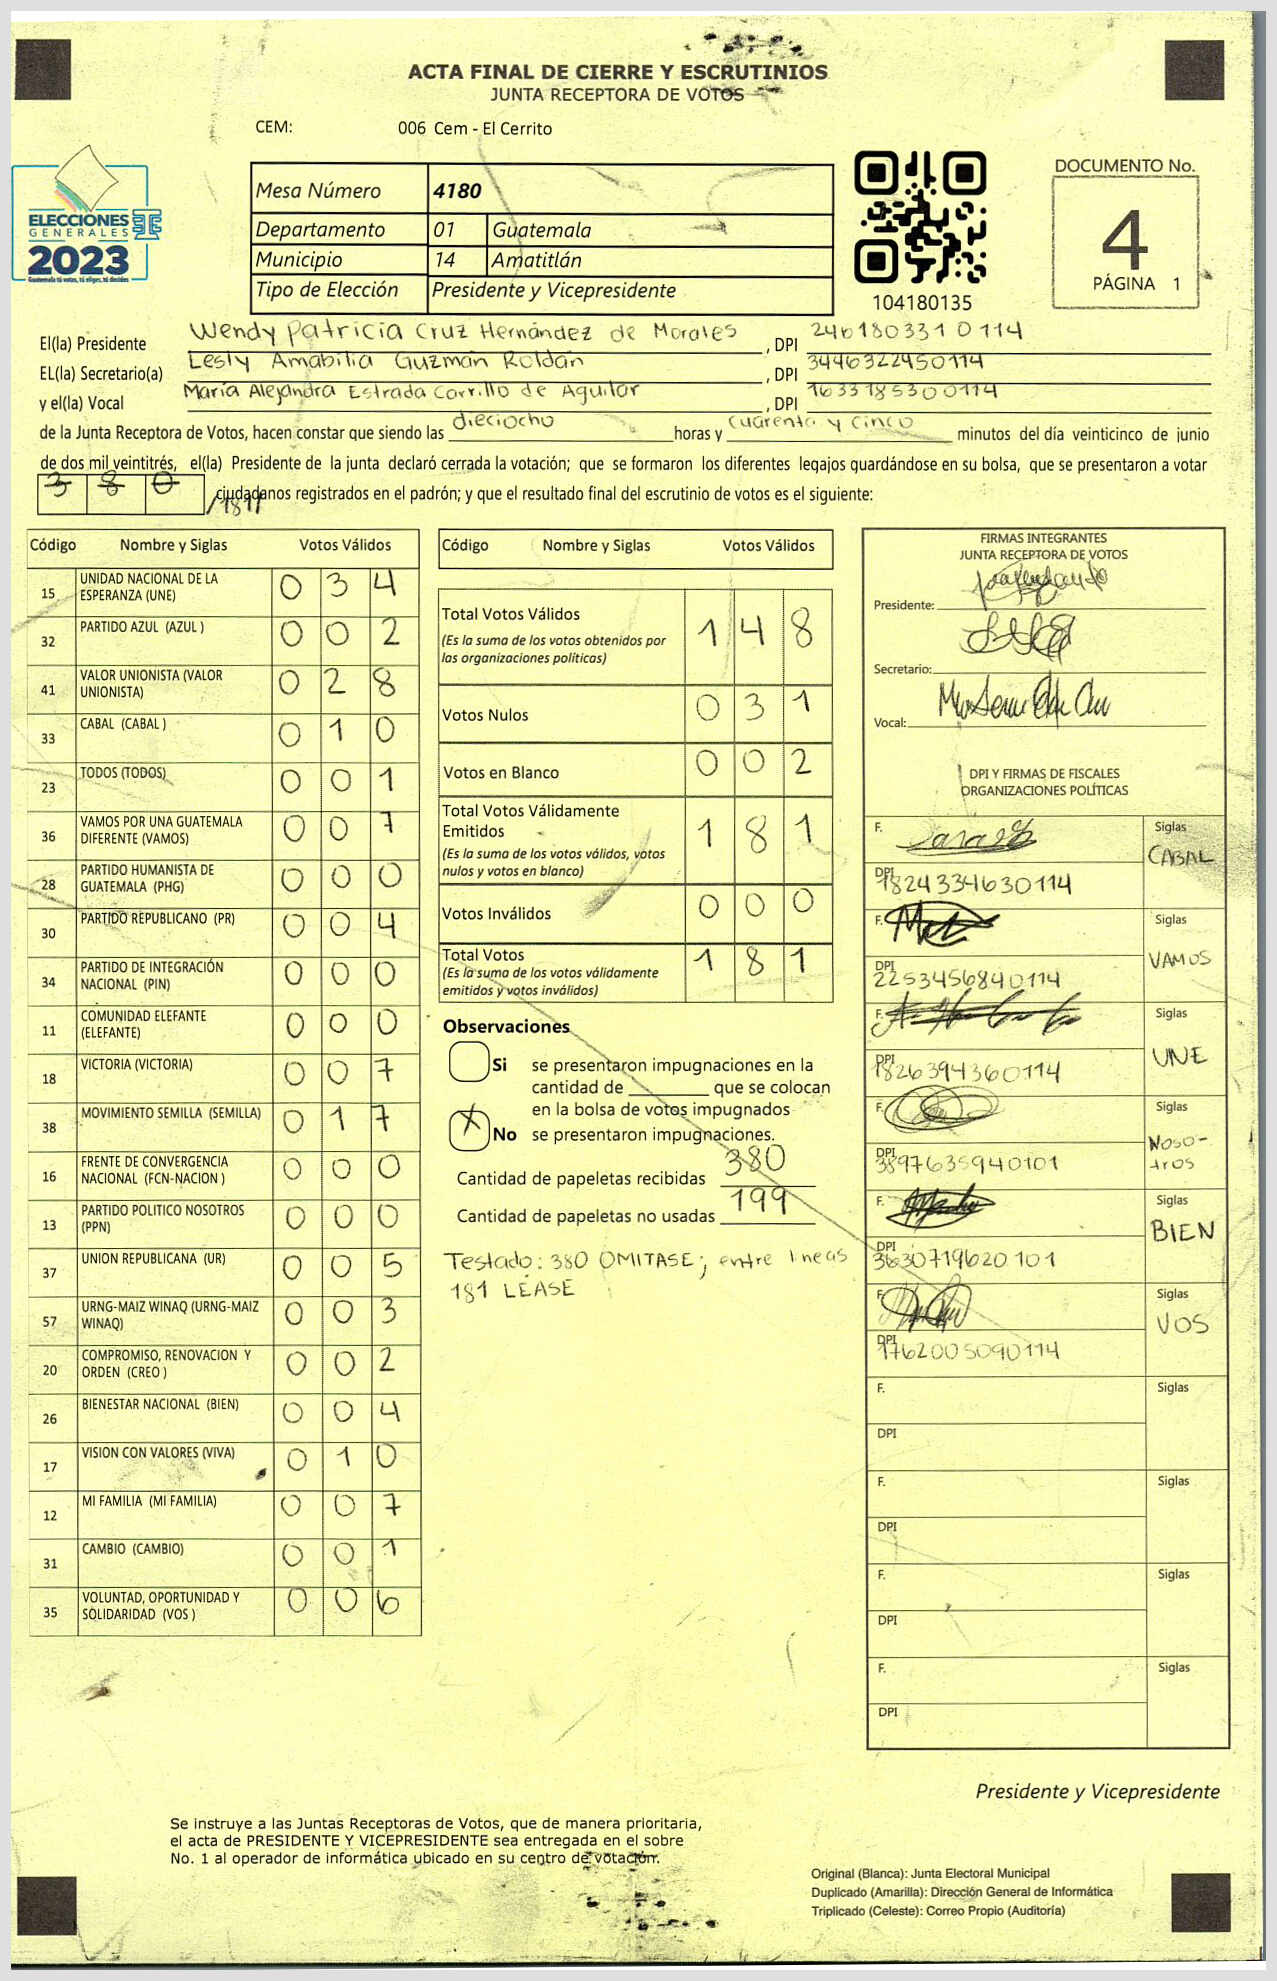 ACTA FINAL DE CIERRE Y ESCRUTINIOS
JUNTA RECEPTORA DE VOTOS
CEM: 006 Cem - El Cerrito
ELECCIONES
GENERALES
2023
Guatemala tú votas, tú eliges, tú decides
Mesa Número 4180
Departamento 01 Guatemala
Municipio 14 Amatitlán
Tipo de Elección Presidente y Vicepresidente
104180135
DOCUMENTO No.
4
PÁGINA 1
El(la) Presidente Wendy Patricia Cruz Hernández de Morales, DPI 246180331 0114
EL(la) Secretario(a) Lesly Amabilia Guzmán Roldán, DPI 3446322450114
y el(la) Vocal María Alejandra Estrada Carrillo de Aguilar, DPI 1633185300114
de la Junta Receptora de Votos, hacen constar que siendo las dieciocho horas y cuarenta y cinco minutos del día veinticinco de junio
de dos mil veintitrés, el(la) Presidente de la junta declaró cerrada la votación; que se formaron los diferentes legajos guardándose en su bolsa, que se presentaron a votar
3 8 0 /181/ ciudadanos registrados en el padrón; y que el resultado final del escrutinio de votos es el siguiente:
Código Nombre y Siglas Votos Válidos
15 UNIDAD NACIONAL DE LA ESPERANZA (UNE) 0 3 4
32 PARTIDO AZUL (AZUL ) 0 0 2
41 VALOR UNIONISTA (VALOR UNIONISTA) 0 2 8
33 CABAL (CABAL ) 0 1 0
23 TODOS (TODOS) 0 0 1
36 VAMOS POR UNA GUATEMALA DIFERENTE (VAMOS) 0 0 7
28 PARTIDO HUMANISTA DE GUATEMALA (PHG) 0 0 0
30 PARTIDO REPUBLICANO (PR) 0 0 4
34 PARTIDO DE INTEGRACIÓN NACIONAL (PIN) 0 0 0
11 COMUNIDAD ELEFANTE (ELEFANTE) 0 0 0
18 VICTORIA (VICTORIA) 0 0 7
38 MOVIMIENTO SEMILLA (SEMILLA) 0 1 7
16 FRENTE DE CONVERGENCIA NACIONAL (FCN-NACION ) 0 0 0
13 PARTIDO POLITICO NOSOTROS (PPN) 0 0 0
37 UNION REPUBLICANA (UR) 0 0 5
57 URNG-MAIZ WINAQ (URNG-MAIZ WINAQ) 0 0 3
20 COMPROMISO, RENOVACION Y ORDEN (CREO ) 0 0 2
26 BIENESTAR NACIONAL (BIEN) 0 0 4
17 VISION CON VALORES (VIVA) 0 1 0
12 MI FAMILIA (MI FAMILIA) 0 0 7
31 CAMBIO (CAMBIO) 0 0 1
35 VOLUNTAD, OPORTUNIDAD Y SOLIDARIDAD (VOS ) 0 0 6
Código Nombre y Siglas Votos Válidos
Total Votos Válidos 1 4 8
(Es la suma de los votos obtenidos por
las organizaciones políticas)
Votos Nulos 0 3 1
Votos en Blanco 0 0 2
Total Votos Válidamente
Emitidos 1 8 1
(Es la suma de los votos válidos, votos
nulos y votos en blanco)
Votos Inválidos 0 0 0
Total Votos 1 8 1
(Es la suma de los votos válidamente
emitidos y votos inválidos)
Observaciones
Si se presentaron impugnaciones en la
cantidad de ________ que se colocan
en la bolsa de votos impugnados
X No se presentaron impugnaciones.
Cantidad de papeletas recibidas 380
Cantidad de papeletas no usadas 199
Testado: 380 OMITASE; entre lineas
181 LEASE
FIRMAS INTEGRANTES
JUNTA RECEPTORA DE VOTOS
Presidente:
Secretario:
Vocal:
DPI Y FIRMAS DE FISCALES
ORGANIZACIONES POLÍTICAS
F. Siglas CABAL
DPI 1824334630114
F. Siglas VAMOS
DPI 2253456840114
F. Siglas UNE
DPI 1826394360114
F. Siglas NOSO-
TROS
DPI 3897635940101
F. Siglas BIEN
DPI 3630719620101
F. Siglas VOS
DPI 1762005090114
F. Siglas
DPI
F. Siglas
DPI
F. Siglas
DPI
F. Siglas
DPI
Presidente y Vicepresidente
Se instruye a las Juntas Receptoras de Votos, que de manera prioritaria,
el acta de PRESIDENTE Y VICEPRESIDENTE sea entregada en el sobre
No. 1 al operador de informática ubicado en su centro de votación.
Original (Blanca): Junta Electoral Municipal
Duplicado (Amarilla): Dirección General de Informática
Triplicado (Celeste): Correo Propio (Auditoría)